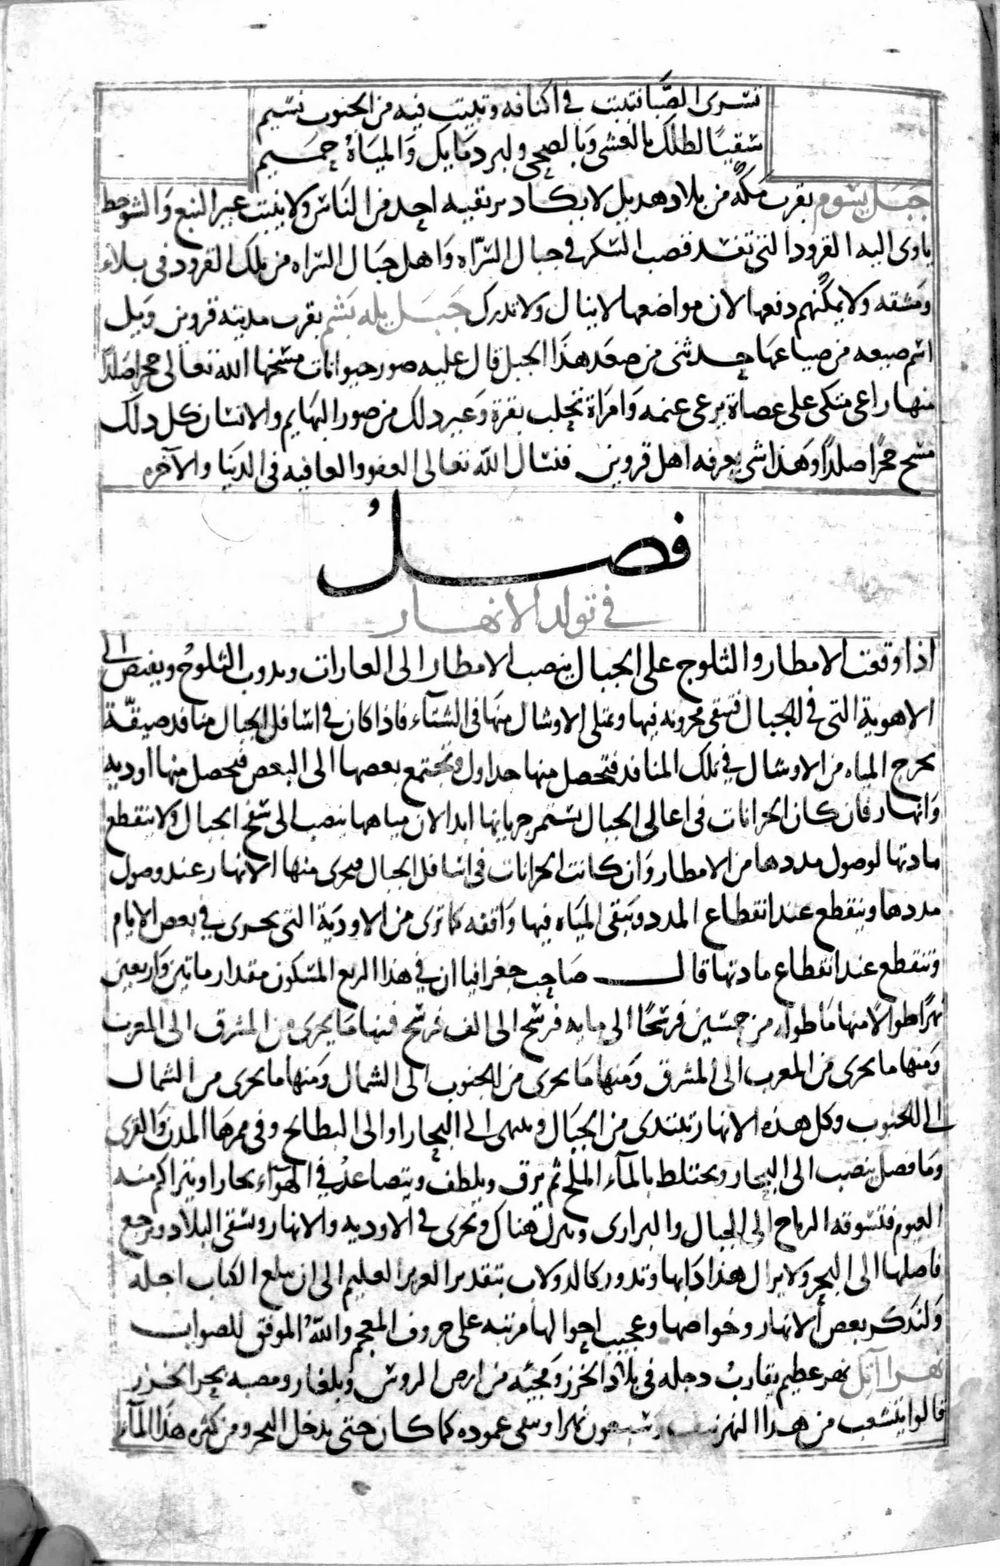 تسرى الصبا فتبيت في اكنافه وتبيت فيه من الجنوب نسيم
سقيًا لظلك بالعشى وبالضحى ولبرد مايك والمياه حميم
جبل يسوم بقرب مكة من بلاد هديل لا يكاد يرتقيه احد من الناس ولا ينبت غير النبع والشوحط
ياوى اليه القرود التى تفسد قصب السكر في جبال السراه واهل جبال السراه من تلك القرود فى بلاء
ومشقه ولا يمكنهم دفعها لان مواضعها لا ينال ولا تدرك جبل يله بشم بقرب مدينه قزوين وقيل
اسم ضيعه من ضياعها حدثنى من صعد هذا الجبل قال عليه صور حيوانات مسخها الله تعالى حجرا صلدًا
منها راعى متكى على عصاة يرعى غنمه وامراة تحلب بقرة وغير ذلك من صور البهايم والانسان كل ذلك
مسخ حجرًا صلدًا وهذا شى يعرفه اهل قزوين فنسال الله تعالى العفو والعافيه فى الدنيا والآخره
فصل
في تولد الانهار
اذا وقعت الامطار والثلوج على الجبال ينصب الامطار الى الغارات وتدوب الثلوج ويفيض الى
الاهوية التى في الجبال فتبقى مخزونه فيها وتمتلى الاوشال منها فى الشتاء فاذا كان في اسافل الجبال منافد ضيقة
يخرج المياه من الاوشال في تلك المنافد فتحصل منها جداول وتجتمع بعضها الى البعض فيحصل منها اوديه
وانهار فان كان الخزانات فى اعالى الجبال يستمر جريانها ابدا لان مياهها ينصب الى سفح الجبال ولا ينقطع
مادتها لوصول مددها من الامطار وان كانت الخزانات فى اسافل الجبال فيجرى منها الانهار عند وصول
مددها وينقطع عند انقطاع المدد ويبقى المياه فيها واقفه كما ترى من الاودية التى يجرى في بعض الايام
وتنقطع عند انقطاع مادتها قال صاحب جغرافيا ان في هذا الربع المسكون مقدار ماتين واربعين
نهرًا طوالًا منها ما طوله من خمسين فرسخًا الى مايه فرسخ الى الف فرسخ فمنها ما يجرى من المشرق الى المغرب
ومنها ما يجرى من المغرب الى المشرق ومنها ما يجرى من الجنوب الى الشمال ومنها ما يجرى من الشمال
الى الجنوب وكل هذه الانهار تبتدى من الجبال وينتهى الى البحار او الى البطائح وفى ممرها المدن والقرى
وما فضل ينصب الى البحار ويختلط بالمآء الملح ثم يرق ويلطف ويتصاعد في الهوآء بخارا ويتراكم منه
الغيوم فتسوقه الرياح الى الجبال والبرارى وينزل هناك ويجرى في الاوديه والانهار ويسقى البلاد ويرجع
فاضلها الى البحر ولا يزال هذا دابها وتدور كالدولاب بتقدير العزيز العليم الى ان يبلغ الكتاب اجله
ولنذكر بعض الانهار وخواصها وعجيب احوالها مرتبه على حروف المعجم والله الموفق للصواب
نهر اتل نهر عظيم يقارب دجله في بلاد الخزر ومجيئه من ارض الروس وبلغار ومصبه بحر الخزر
قالوا يتشعب من هذا النهر نيف وسبعون نهرا ويبقى عموده كما كان حتى يدخل البحر ومن كثره هذا المآء